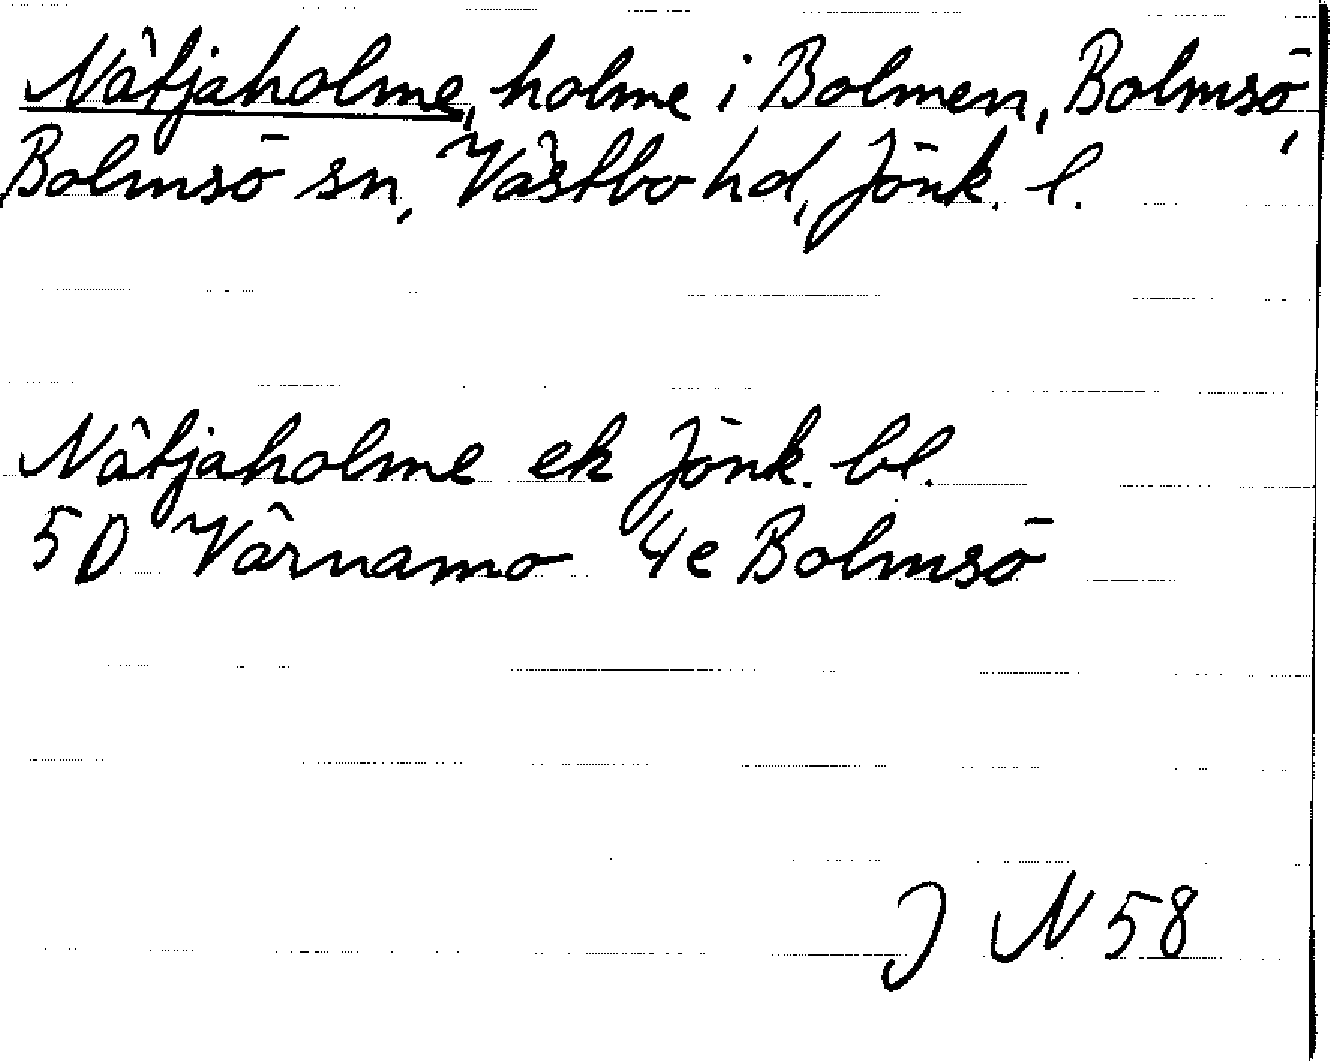 Nätjaholme, holme i Bolmen, Bolmsö,
Bolmsö sn, Västbo hd, Jönk. l.
Nätjaholme ek Jönk. bl.
5D Värnamo 4e Bolmsö
J N 58